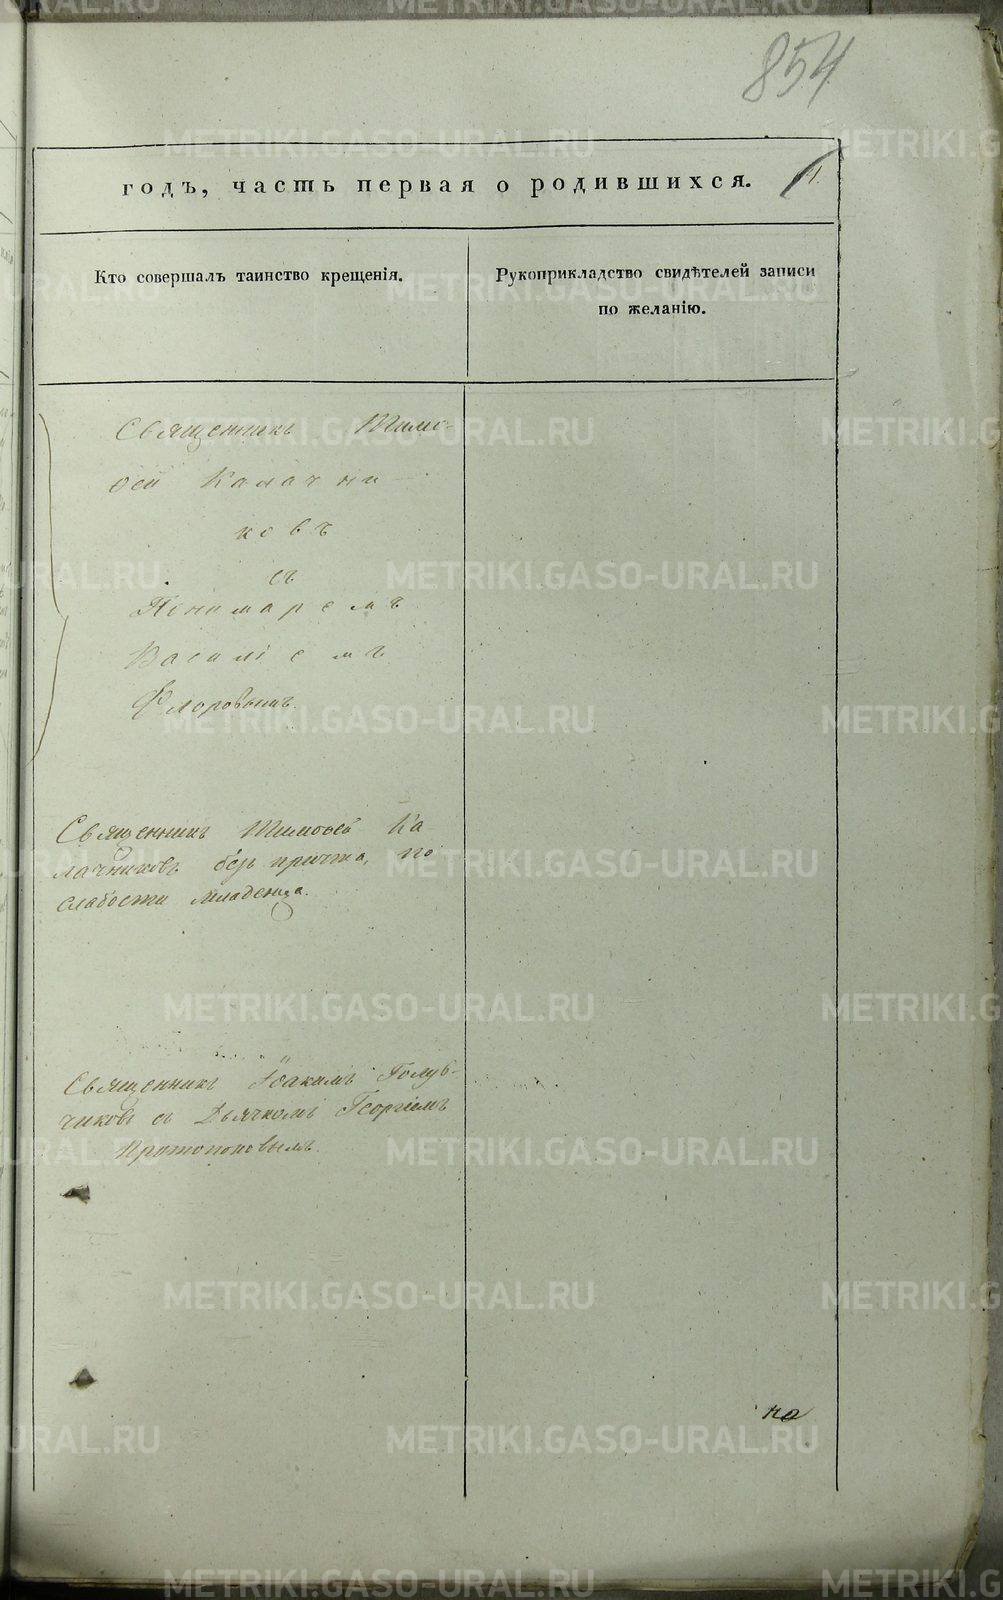 854
годъ, часть первая о родившихся.
Кто совершалъ таинство крещенія.
Рукоприкладство свидѣтелей записи
по желанію.
Священникъ Тимо-
ѳей Калачни-
ковъ
съ
Пономаремъ
Василіемъ
Флоровымъ.
Священникъ Тимоѳей Ка
лачниковъ безъ причта, по
слабости младенца.
Священникъ Іоакимъ Голуб-
чиковъ съ Дьячкомъ Георгіемъ
Протопоповымъ.
METRIKI.GASO-URAL.RU